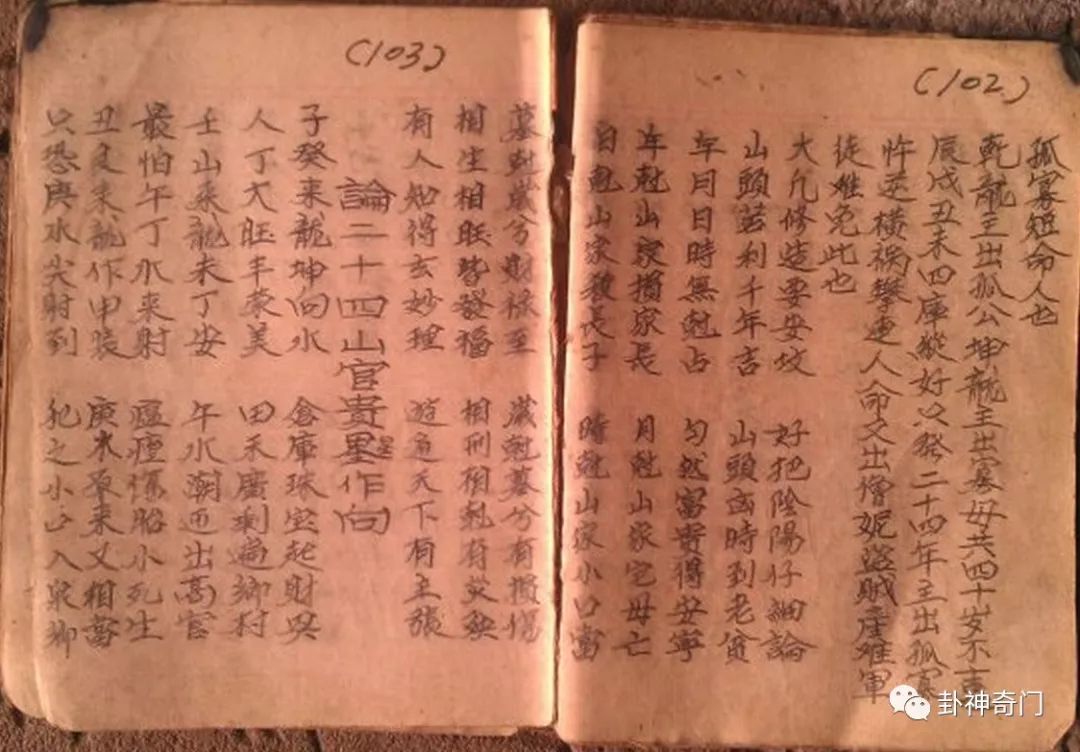 (102)
孤寡短命人也
乾龍主出孤公坤龍主出寡母共四十岁不吉
辰戌丑未四庫龍好只發二十四年主出孤寡
忤逆横禍攀連人命又出僧妮盗賊産难軍
徒难免此也
大凡修造要安坟 好把陰陽仔細論
山頭若利千年吉 山頭凶時到老貧
年月日時無尅占 匀然富貴得安寧
年尅山家損家長 月尅山家宅母亡
日尅山家衰長子 時尅山家小口當
(103)
墓尅歲兮財禄至 歲尅墓兮有損傷
相生相旺皆發福 相刑相尅有灾殃
有人知得玄妙理 遊遍天下有主張
論二十四山官貴星作向
子癸来龍坤向水 倉庫珠宝起財興
人丁大旺丰豪美 田禾廣剩遍鄉村
壬山来龍未丁安 午水潮迎出高官
最怕午丁水来射 瘟𤺄傷胎小死生
丑艮来龍作甲裝 庚水原来又相當
只恐庚水尖射到 犯之小口入泉鄉
卦神奇门